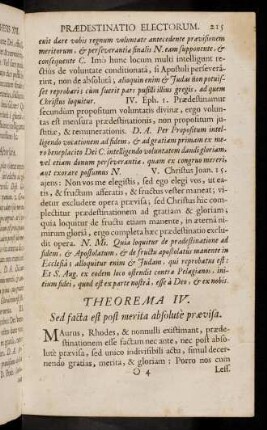 PRÆDESTINATIO ELECTORUM. 215
cuit dare vobis regnum voluntate antecedente prævisionem
meritorum, & perseverantiæ finalis N. eam supponente, &
consequente C. Imò hunc locum multi intelligunt re-
ctiùs de voluntate conditionatâ, si Apostoli persevera-
rint, non de absolutâ, alioquin enim & Judas non potuis-
set reprobari cùm fuerit pars pusilli illius gregis, ad quem
Christus loquitur. IV. Eph. 1. Prædestinamur
secundum propositum voluntatis divinæ, ergo volun-
tas est mensura prædestinationis, non propositum ju-
stitiæ, & remunerationis. D. A. Per Propositum intel-
ligendo vocationem ad fidem, & ad gratiam primam ex me-
ro beneplacito Dei C. intelligendo voluntatem dandi gloriam,
vel etiam donum perseverantiæ, quam ex congruo mereri
aut exorare possumus N. V. Christus Joan. 15.
ajens: Non vos me elegistis, sed ego elegi vos, ut ea-
tis, & fructum afferatis, & fructus vester maneat; vi-
detur excludere opera prævisa, sed Christus hîc com-
plectitur prædestinationem ad gratiam & gloriam,
quia loquitur de fructu etiam manente, in æterna ni-
mirum gloriâ, ergo completa hæc prædestinatio exclu-
dit opera. N. Mi. Quia loquitur de prædestinatione ad
fidem, & Apostolatum, & de fructu apostolatûs manente in
Ecclesiâ; alioquitur enim & Judam, qui reprobatus est:
Et S. Aug. ex eodem loco ostendit contra Pelagianos, ini-
tium fidei, quod est ex parte nostrâ, esse à Deo, & ex nobis.
THEOREMA IV.
Sed facta est post merita absolutè prævisa.
Maurus, Rhodes, & nonnulli existimant, præde-
stinationem esse factam nec ante, nec post abso-
lutè prævisa, sed unico indivisibili actu, simul decer-
nendo gratiam, merita, & gloriam: Porro nos cum
O 4 Less.